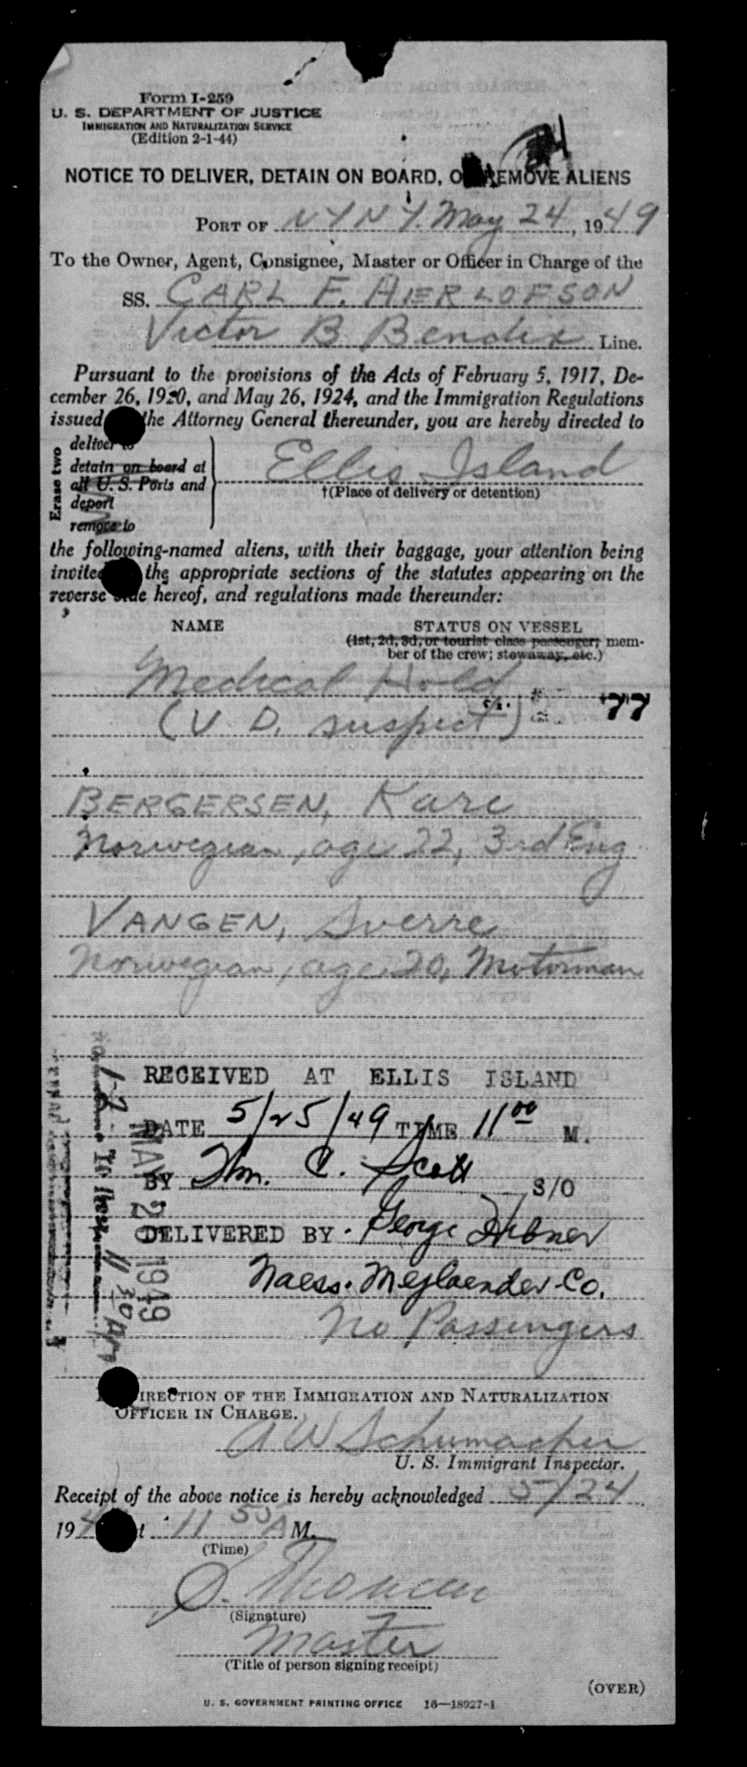 Form I-259
U. S. DEPARTMENT OF JUSTICE
IMMIGRATION AND NATURALIZATION SERVICE
(Edition 2-1-44)
NOTICE TO DELIVER, DETAIN ON BOARD, OR REMOVE ALIENS
PORT OF N Y N Y. May 24, 1949
To the Owner, Agent, Consignee, Master or Officer in Charge of the
SS. CARL F. HERLOFSON
Victor B Bendix Line.
Pursuant to the provisions of the Acts of February 5, 1917, De-
cember 26, 1920, and May 26, 1924, and the Immigration Regulations
issued the Attorney General thereunder, you are hereby directed to
Erase two
deliver to
detain on board at
all U. S. Ports and
deport
remove to
Ellis Island
†(Place of delivery or detention)
the following-named aliens, with their baggage, your attention being
invited the appropriate sections of the statutes appearing on the
reverse side hereof, and regulations made thereunder:
NAME STATUS ON VESSEL
(1st, 2d, 3d, or tourist class passenger; mem-
ber of the crew; stowaway, etc.)
Medical Hold
(V. D. suspect) 77
BERGERSEN, Kare
Norwegian, age 22, 3rd Eng
VANGEN, Sverre
Norwegian, age 20, Motorman
RECEIVED AT ELLIS ISLAND
DATE 5/25/49 TIME 11 00 M.
BY Wm. C. Scott S/O
DELIVERED BY. George Hibner
Naess. Mejlaender Co.
No Passengers
MAY 26 1949
DIRECTION OF THE IMMIGRATION AND NATURALIZATION
OFFICER IN CHARGE.
A W Schumacher
U. S. Immigrant Inspector.
Receipt of the above notice is hereby acknowledged 5/24
194 at 11 55 A M.
(Time)
(Signature)
Master
(Title of person signing receipt)
(OVER)
U. S. GOVERNMENT PRINTING OFFICE 16—18927-1